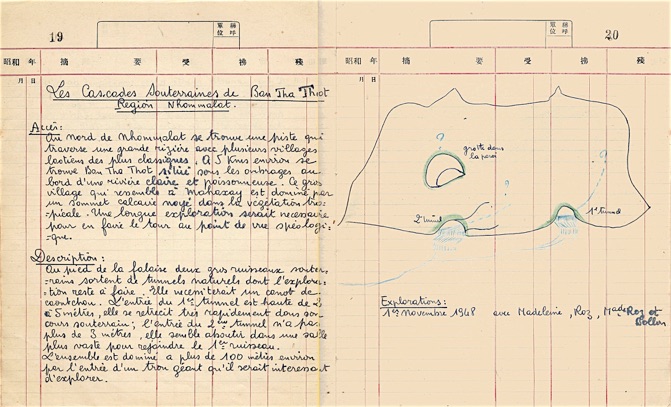 19
單位
昭和 年
摘
要
受
拂
殘
月 日
Les Cascades Souterraines de Ban Tha Thot
Region Nhommalat.
Accès:
Au nord de Nhommalat se trouve une piste qui
traverse une grande rizière avec plusieurs villages
laotiens des plus classiques. A 5 Kms environ se
trouve Ban Tha Thot situé sous les ombrages au
bord d'une rivière claire et poissonneuse. Ce gros
village qui ressemble à Mahaxay est dominé par
un sommet calcaire noyé dans la végétation tro-
-picale. Une longue exploration serait necessaire
pour en faire le tour au point de vue spéologi-
-que.
Description:
Au pied de la falaise deux gros ruisseaux souter-
-rains sortent de tunnels naturels dont l'explora-
-tion reste à faire. Elle necessiterait un canot de
caoutchou. L'entrée du 1er tunnel est haute de 2
a 3 mètres, elle se retrécit très rapidement dans son
cours souterrain; l'entrée du 2me tunnel n'a pas
plus de 3 mètres, elle semble aboutir dans une salle
plus vaste pour rejoindre le 1er ruisseau.
L'ensemble est dominé a plus de 100 mètres environ
par l'entrée d'un trou géant qu'il serait interessant
d'explorer.
20
單位
昭和 年
摘
要
受
拂
殘
月 日
?
grotte dans
la paroi
?
?
2e tunnel
1er tunnel
Explorations:
1er novembre 1948 avec Madeleine, Roz, Made Roz et
Bollon